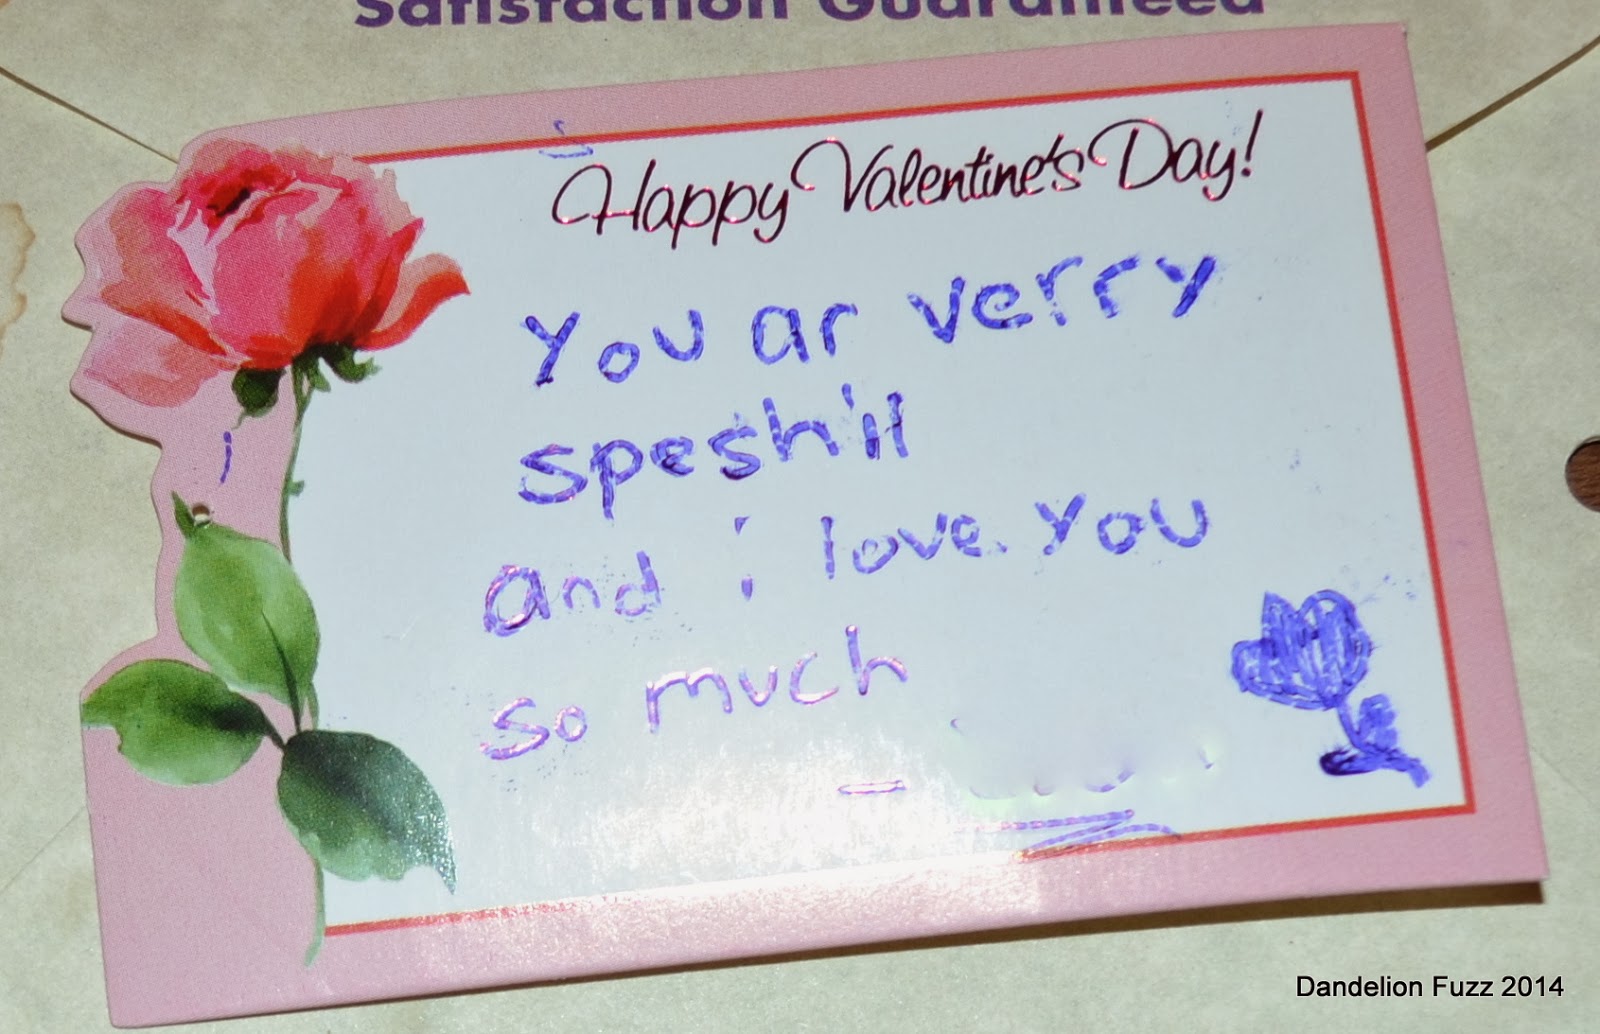 Satisfaction Guaranteed
Happy Valentine's Day!
You ar verry
spesh'il
and i love you
so much
Dandelion Fuzz 2014